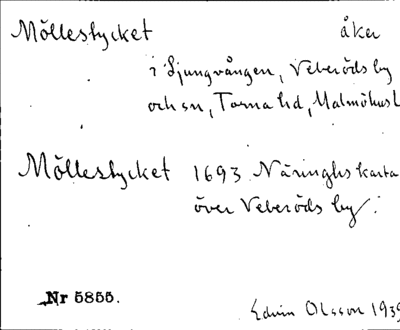 Möllestycket åker
i Ljungvången, Veberöds by
och sn, Torna hd, Malmöhus l
Möllestycket 1693 Näringhs karta
över Veberöds by:
Nr 5855.
Edvin Olsson 1939